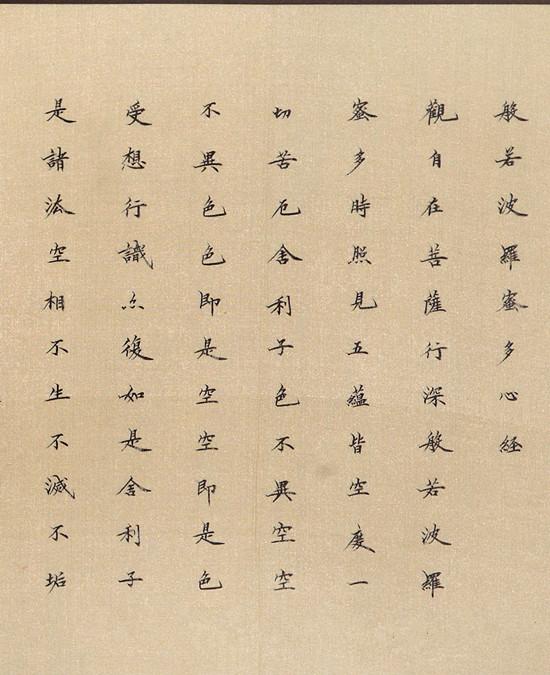 般若波羅蜜多心経
觀自在菩薩行深般若波羅
蜜多時照見五蘊皆空度一
切苦厄舍利子色不異空空
不異色色即是空空即是色
受想行識亦復如是舍利子
是諸法空相不生不滅不垢